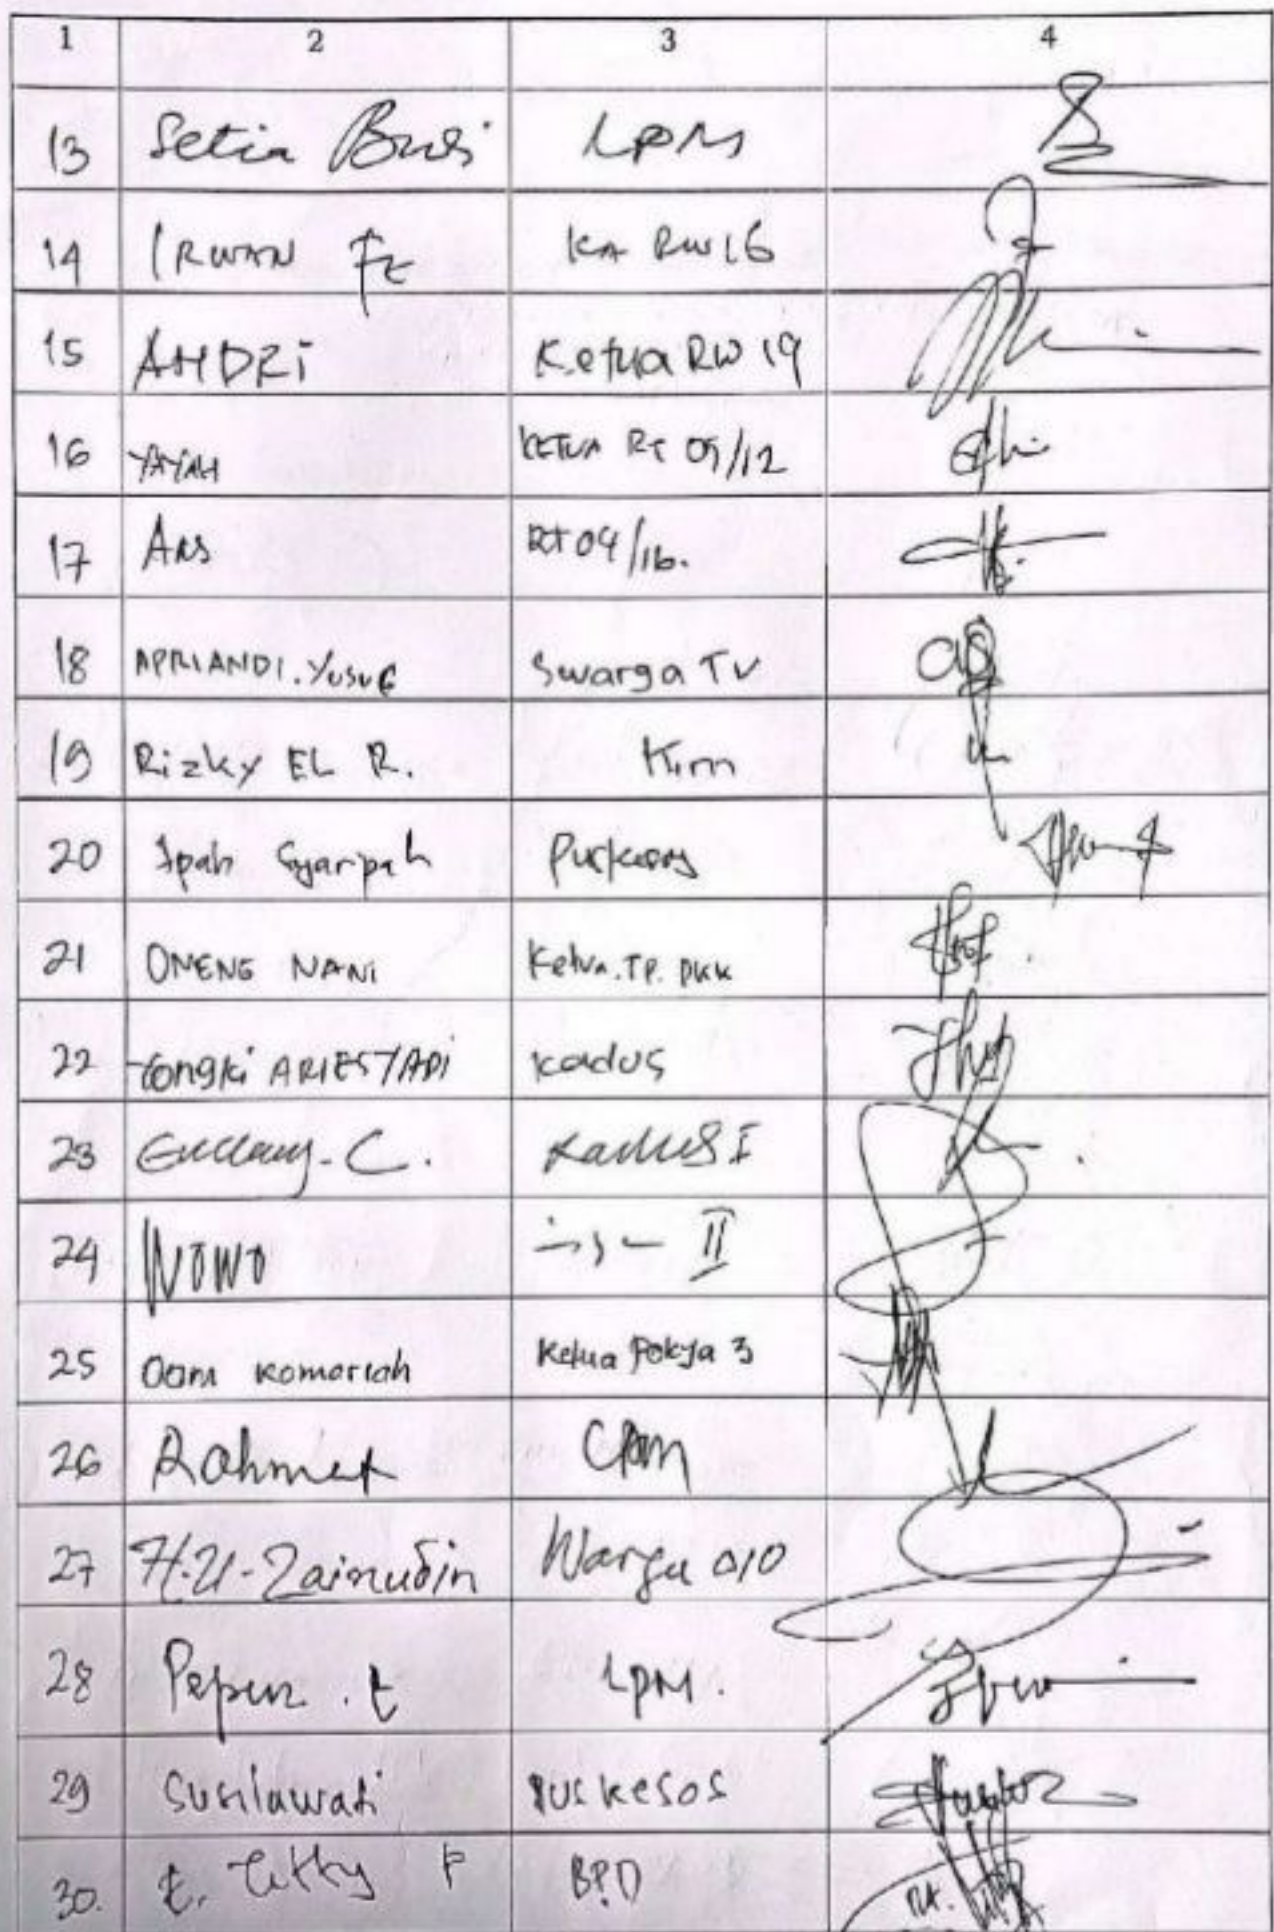 1 2 3 4
13 Setia Budi LPM
14 IRWAN KA RW 16
15 ANDRI Ketua RW 19
16 YAYAH KETUA RT 05/12
17 RT 04/16.
18 APRIANDI. YUSUF Swarga TV
19 Rizky EL R. Kim
20 Ipah Syaripah
21 ONENG NANI Ketua. TP. PKK
22 Yongki ARIESTADI Kadus
23 C. Kadus I
24 WOWO II
25 Oom Komariah Ketua Pokja 3
26 Rahmat
27 H.U. Zainudin Warga 010
28 LPM.
29 Susilawati Puskesos
30. E. Tetty P BPD